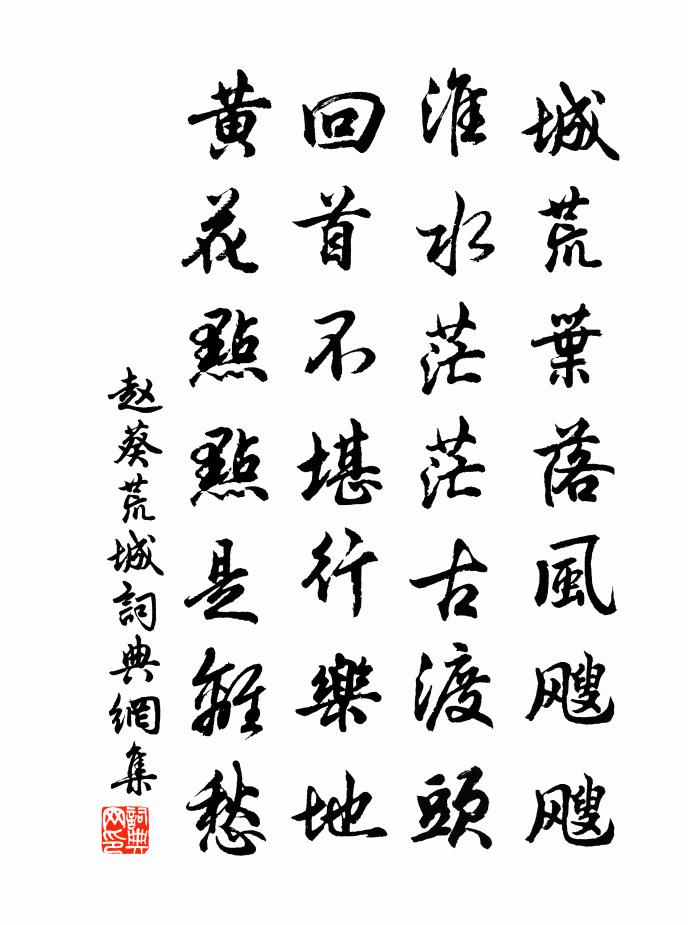 城荒葉落風颼颼
淮水茫茫古渡頭
回首不堪行樂地
黃花點點是離愁
赵葵荒城詞典網集
詞典网印